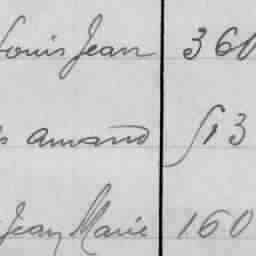 Louis Jean 360
s amand 513
Jean Marie 160